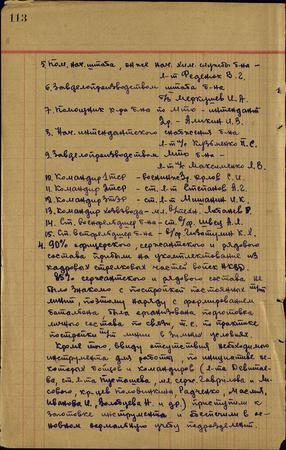 113
5. Пом. нач. штаба, он же нач. хим. службы б-на –
л-т Феденюк В. Г.
6. Завделопроизводством штаба б-на
Меркушев И. А.
7. Помощник к-ра б-на по МТО – интендант
3 р – Аликин И. В.
8. Нач. интендантского снабжения б-на
л-т Кузьменко П. С.
9. Завделопроизводством МТО б-на –
л-т Максименко Л. В.
10. Командир 1 тср – воениж. 3 р. С. И.
11. Командир 2 тср – ст. л-т Степанов А. Г.
12. Командир 3 тср – ст. л-т Мишанин И. К.
13. Командир хозвзвода – мл. Лобанев Р.
14. Ст. военфельдшер б-на – ст. в/ф. Швец А. И.
15. Ст. ветфельдшер б-на – в/ф. К. Я.
4. 90% офицерского, сержантского и рядового
состава прибыли на укомплектование из
кадровых стрелковых частей войск НКВД.
85% сержантского и рядового состава не
было знакомо с постройкой постоянных
линии, поэтому наряду с формированием
батальона была организована подготовка
личного состава по связи, т. е. на практике
постройки линии в зимних условиях.
Кроме того, ввиду отсутствия необходимого
инструмента для работы, по инициативе не-
которых бойцов и командиров (л-та Девитае-
ва, ст. л-та мл. серж. Гаврилова и Ли-
сового, кр-цев Половинкина, Радченко, Маслия,
Иванова И., и др.) приступили к
заготовке инструмента и обеспечили в ос-
новном нормальную учебу подразделений.